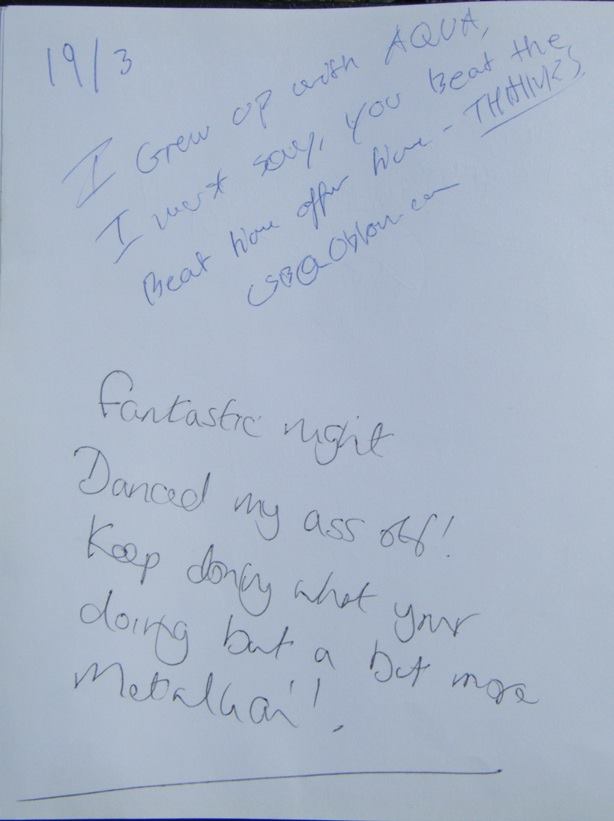 19/3
I Grew up with AQUA,
I must say, you Beat the
Beat time after time - THANKS
fantastic night
Danced my ass off!
Keep doing what your
doing but a bit more